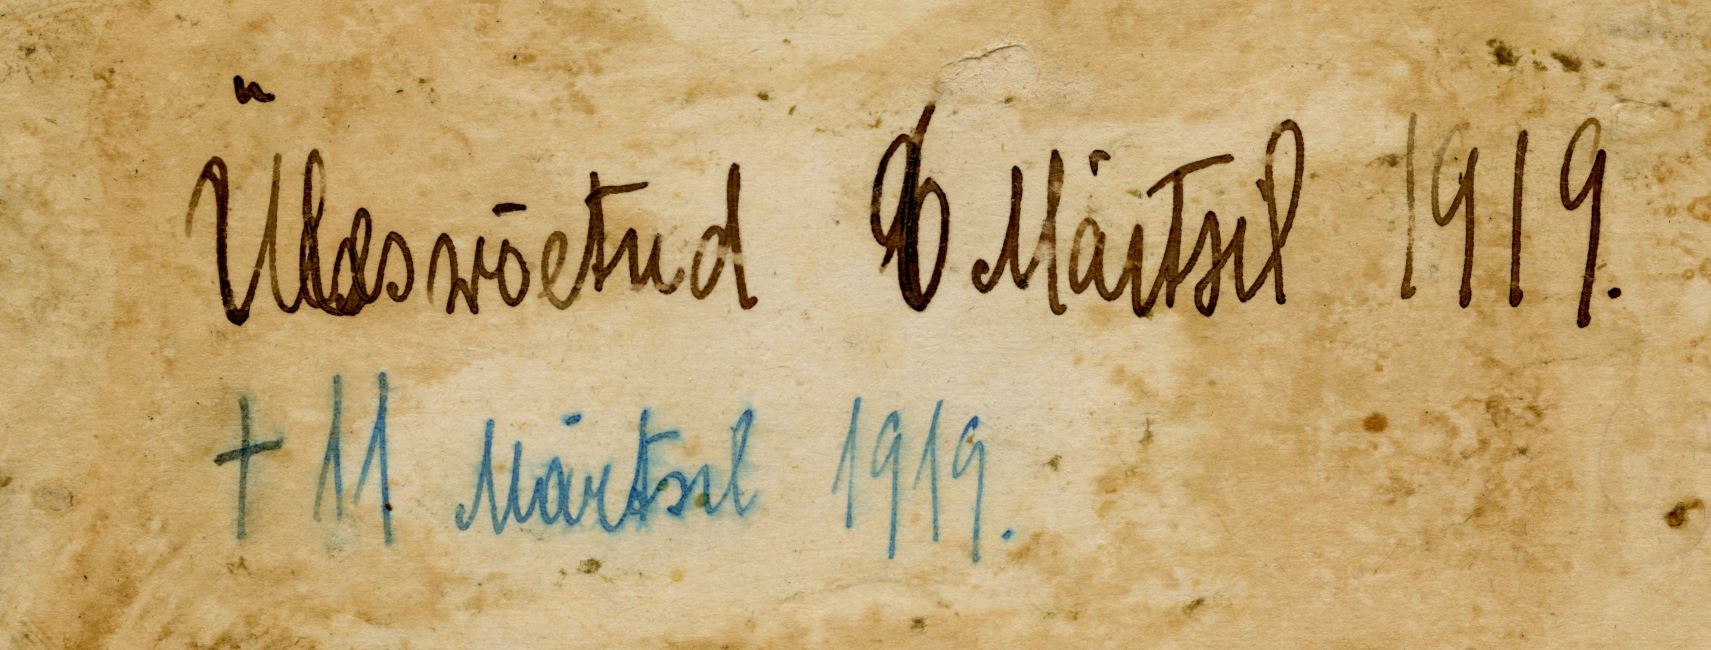 Üleswõetud 6 Märtsil 1919.
+ 11 Märtsil 1919.